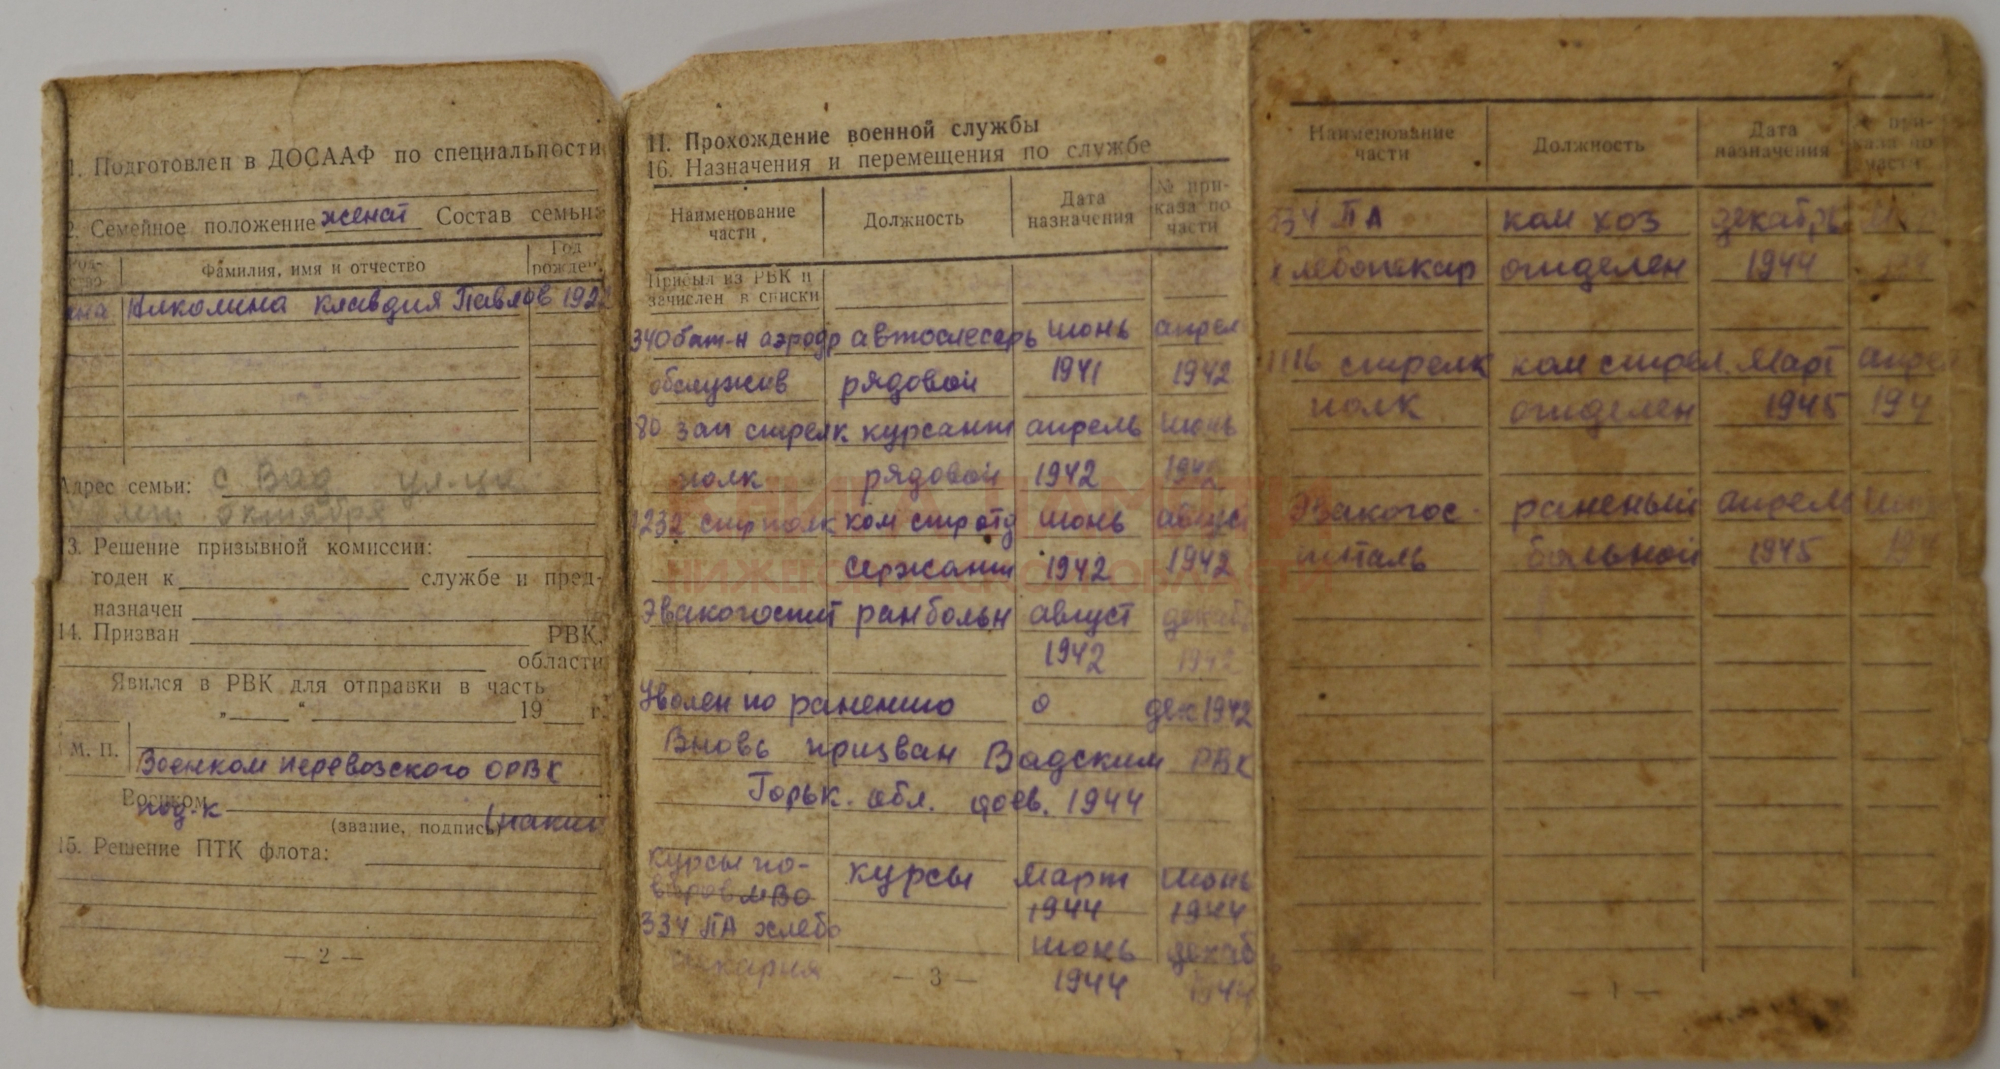 1. Подготовлен в ДОСААФ по специальности
2. Семейное положение женат Состав семьи:
Фамилия, имя и отчество
Год рожден.
на Николина Клавдия Павлов 192
Адрес семьи: с Вад ул-ца
лет октября
13. Решение призывной комиссии:
годен к службе и пред-
назначен
14. Призван РВК,
области
Явился в РВК для отправки в часть
„ “ 19 г.
М. П.
Военком Перевозского ОРВК
Военком
под-к
(звание, подпись)
15. Решение ПТК флота:
— 2 —
II. Прохождение военной службы
16. Назначения и перемещения по службе
Наименование части
Должность
Дата назначения
№ при-каза по части
Прибыл из РВК и
зачислен в списки
340 бат-н аэродр автослесарь июнь апрел
обслужив рядовой 1941 1942
80 зап стрелк курсант апрель июнь
полк рядовой 1942 1942
1232 стр полк ком стр отд июнь август
сержант 1942 1942
Эвакогоспит ран больн август декабр
1942 1942
Уволен по ранению о дек 1942
Вновь призван Вадским РВК
Горьк. обл. фев. 1944
Курсы по- курсы март июнь
варов МВО 1944 1944
334 ПА хлебо июнь декаб
пекария 1944 1944
— 3 —
Наименование части
Должность
Дата назначения
№ при-каза по части
334 ПА ком хоз декабрь
хлебопекар отделен 1944
1116 стрелк ком стрел март апрел
полк отделен 1945 194
Эвакогос- раненый апрель
питаль больной 1945 194
КНИГА ПАМЯТИ
НИЖЕГОРОДСКОЙ ОБЛАСТИ